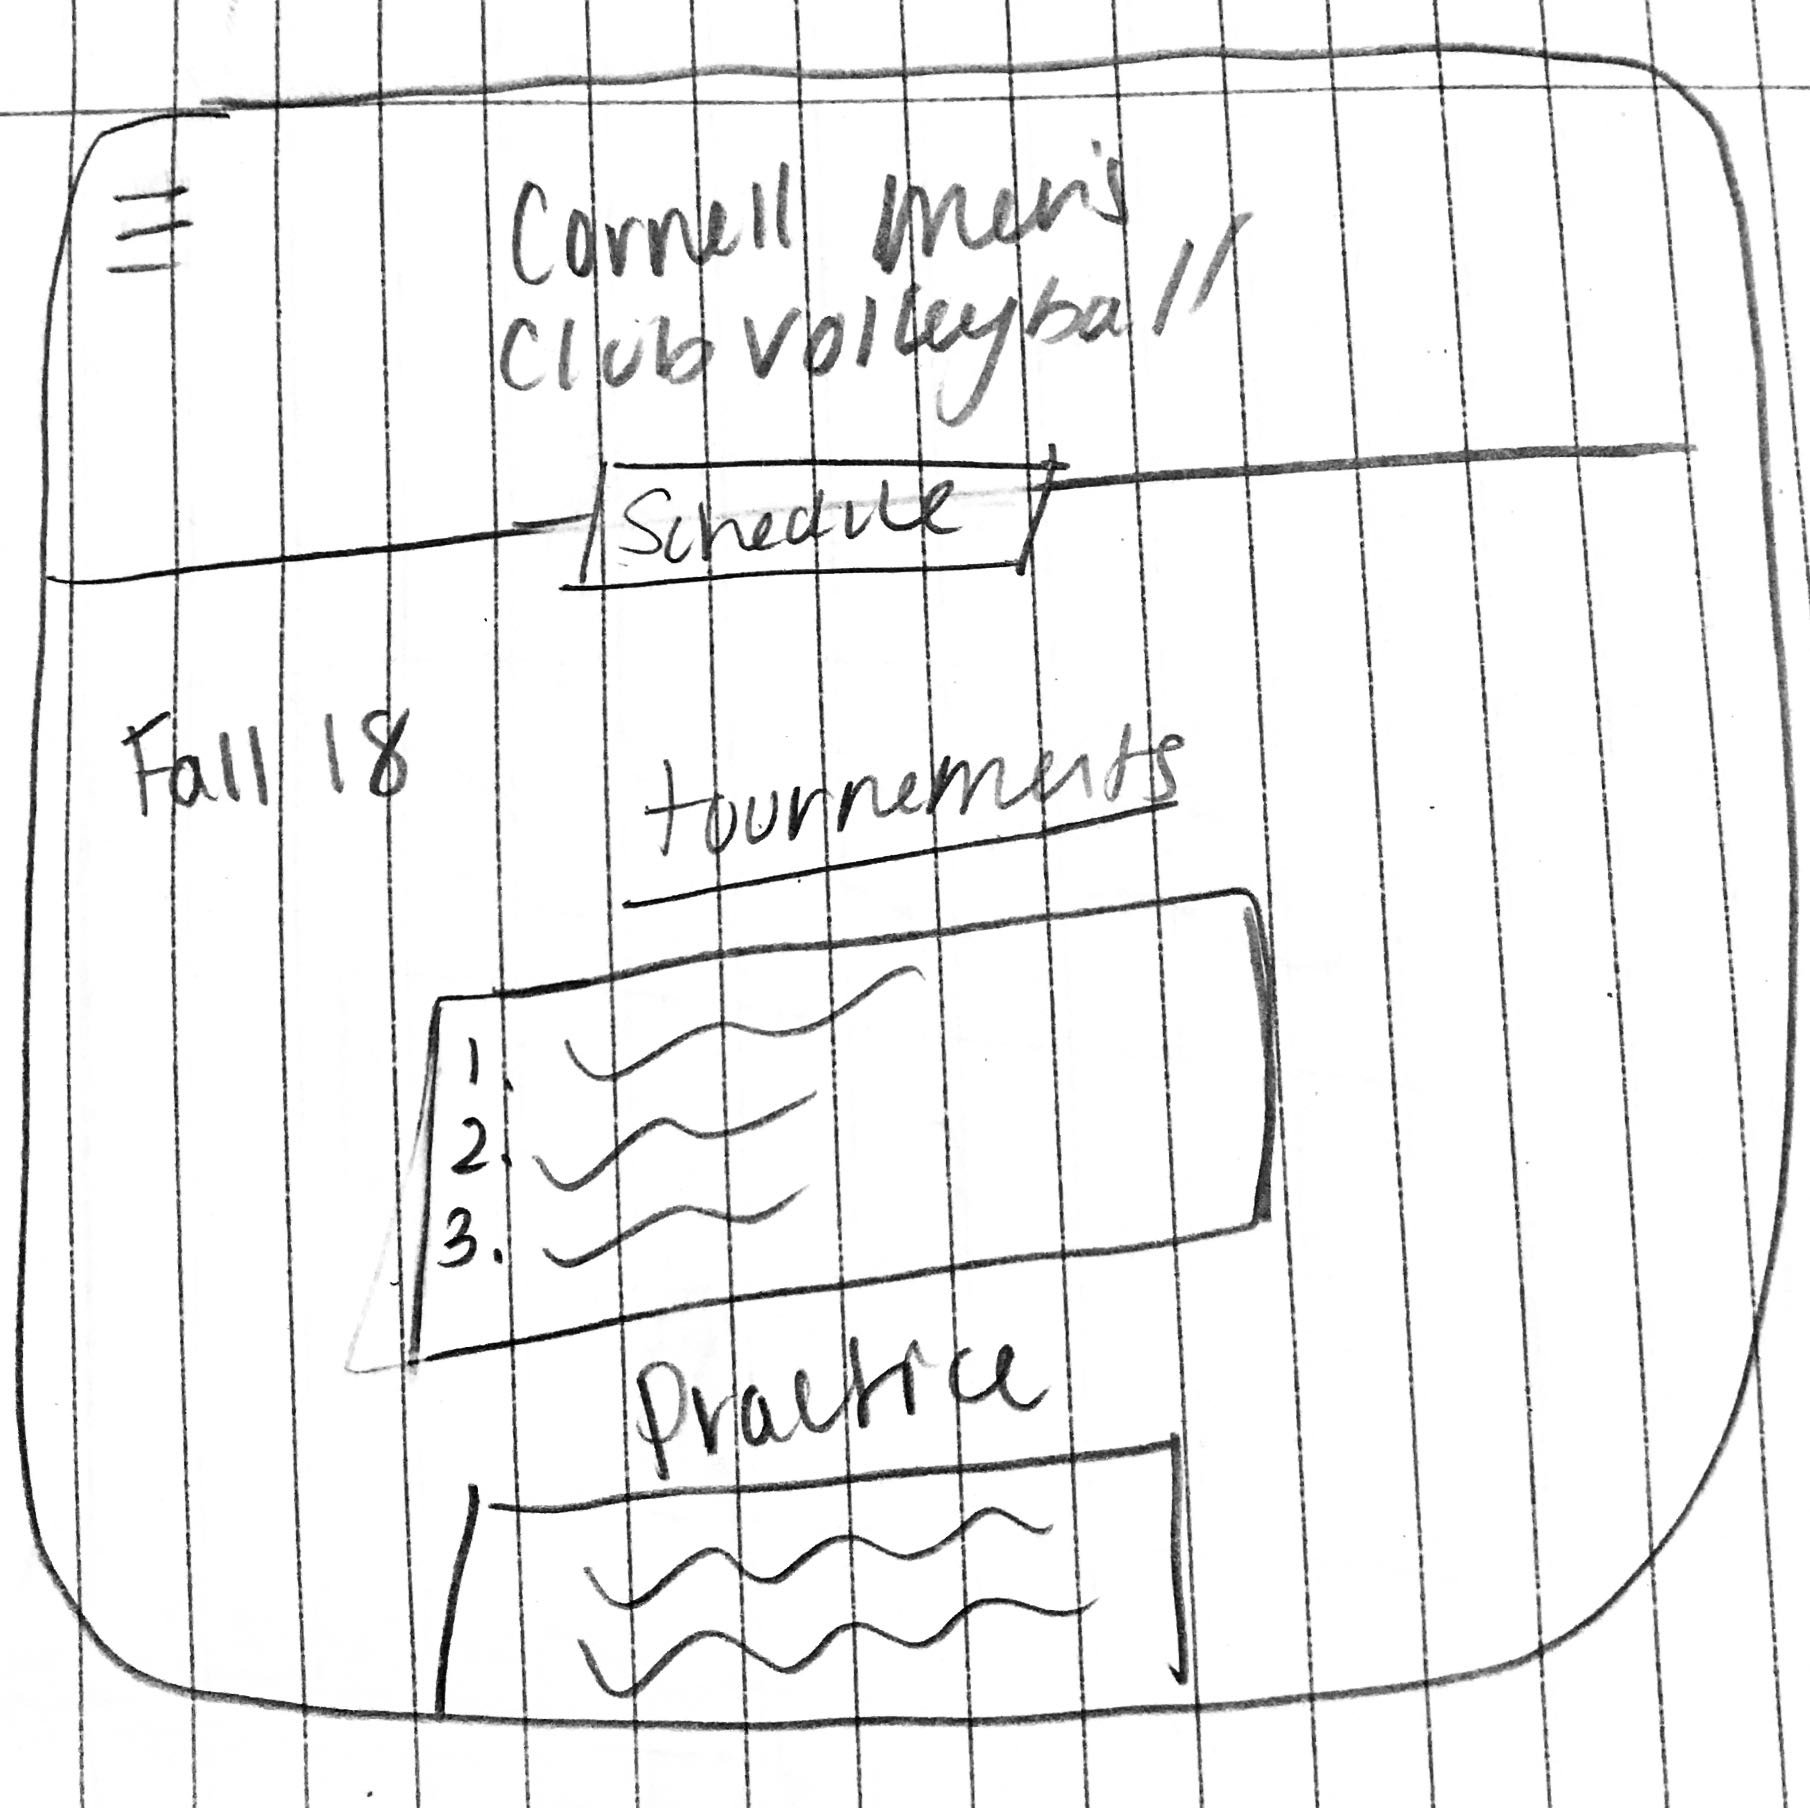 Cornell men's
Club Volleyball
Schedule
Fall 18
tournements
1.
2.
3.
Practice